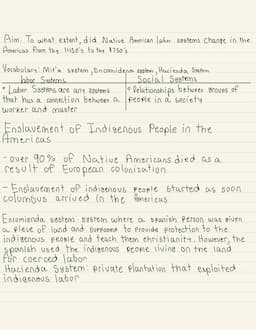 Aim: To what extent, did Native American labor systems change in the
Americas from the 1450's to the 1750's
Vocabulary: Mit'a system, Encomienda system, Hacienda System
Labor Systems
Social Systems
• Labor Systems are any systems
that has a connection between a
worker and master
• Relationships between groups of
people in a society
Enslavement of Indigenous People in the
Americas
- over 90% of Native Americans died as a
result of European colonization
- Enslavement of indigenous people started as soon
columbus arrived in the Americas
Encomienda system: system where a spanish person was given
a piece of land and supposed to provide protection to the
indigenous people and teach them christianity. However, the
spanish used the indigenous people living on the land
for coerced labor
Hacienda System: private plantation that exploited
indigenous labor